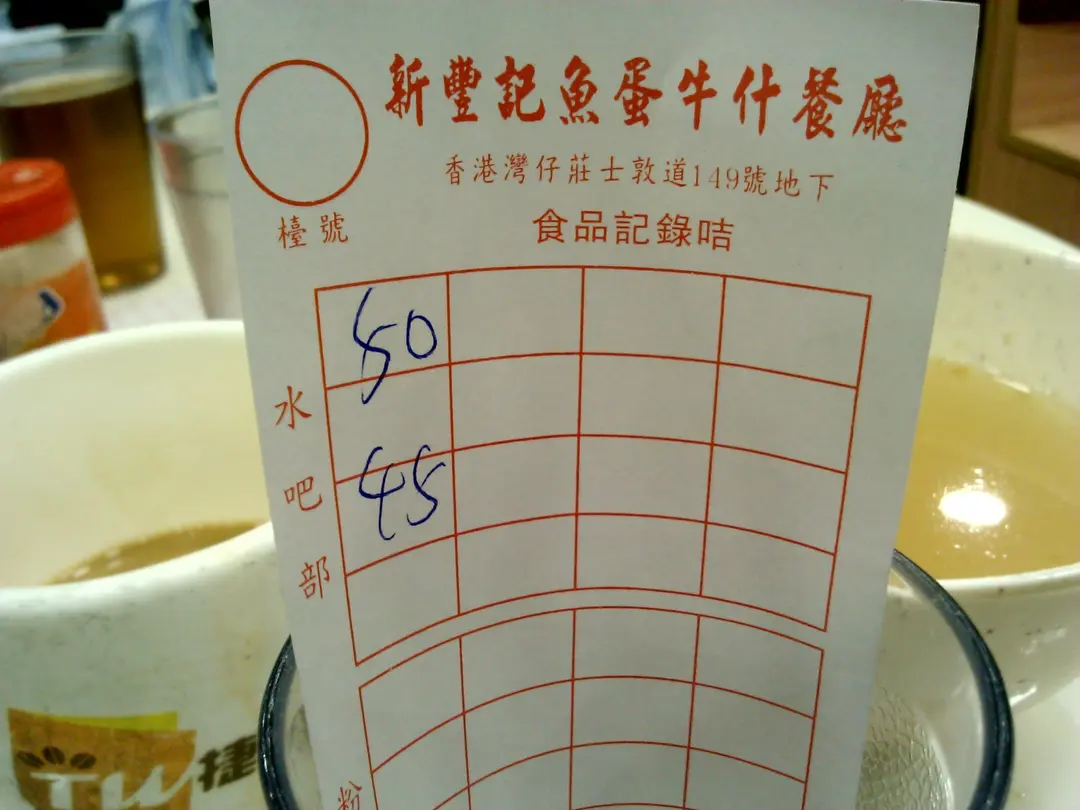 新豐記魚蛋牛什餐廳
香港灣仔莊士敦道149號地下
檯號
食品記錄咭
水吧部
50
45
粉
TW捷